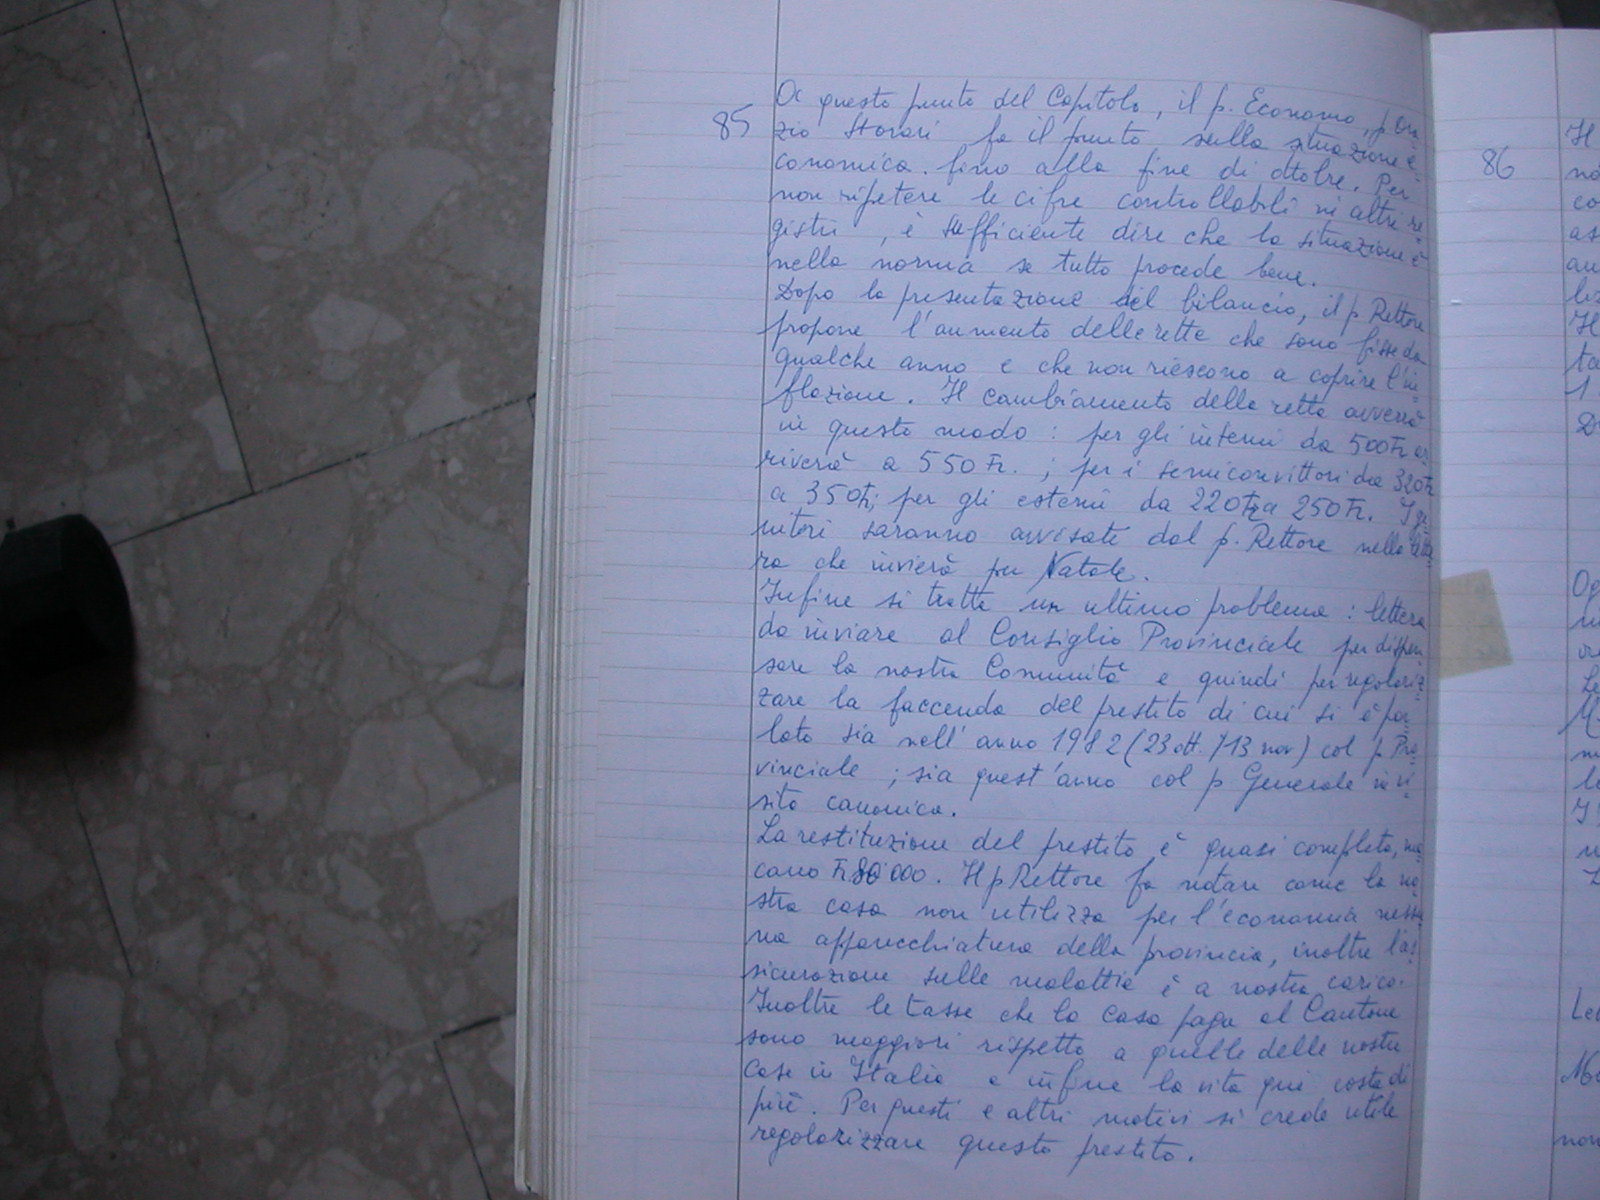 85
A questo punto del Capitolo, il p. Economo, p. Ora
zio Storari fa il punto sulla situazione e
conomica. fino alla fine di ottobre. Per
non ripetere le cifre controllabili in altri re
gistri, è sufficiente dire che la situazione è
nella norma se tutto procede bene.
Dopo la presentazione del bilancio, il p Rettore
propone l'aumento delle rette che sono fisse da
qualche anno e che non riescono a coprire l'in
flazione. Il cambiamento della retta avverrà
in questo modo: per gli interni da 500 Fr ar
riverà a 550 Fr.; per i semiconvittori da 320 Fr
a 350 Fr; per gli esterni da 220 Fr a 250 Fr. I ge
nitori saranno avvisati dal p. Rettore nella lette
ra che invierà per Natale.
Infine si tratta un ultimo problema: lettera
da inviare al Consiglio Provinciale per dispen
sare la nostra Comunità e quindi per regolariz
zare la faccenda del prestito di cui si è par
lato sia nell'anno 1982 (23 ott. / 13 nov) col p Pro
vinciale; sia quest'anno col p Generale in vi
sita canonica.
La restituzione del prestito è quasi completa, ma
cano Fr 80'000. Il p Rettore fa notare come la no
stra casa non utilizza per l'economia nessu
na apparecchiatura della provincia, inoltre l'as
sicurazione sulle malattia è a nostra carico.
Inoltre le tasse che la casa paga al Cantone
sono maggiori rispetto a quelle delle nostre
case in Italia e infine la vita qui costa di
più. Per questi e altri motivi si crede utile
regolarizzare questo prestito.
86